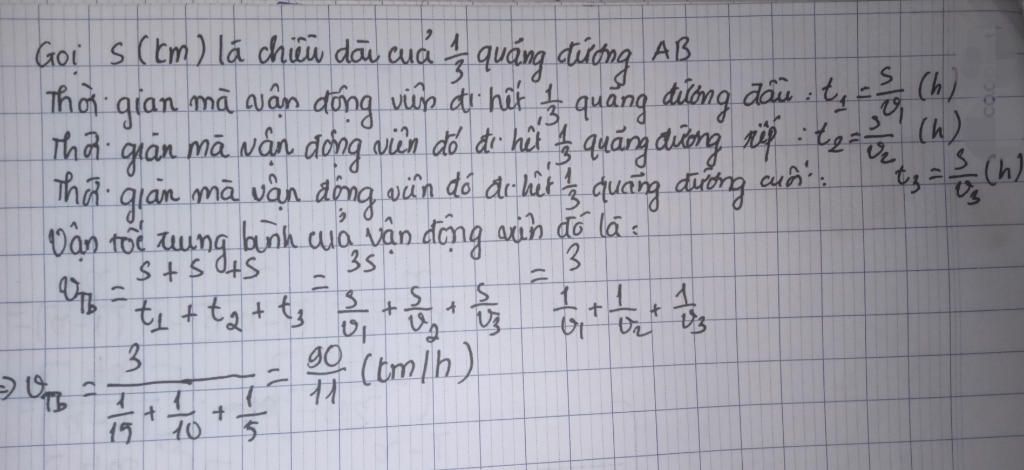 Gọi S (km) là chiều dài của 1/3 quãng đường AB
Thời gian mà vận động viên đi hết 1/3 quãng đường đầu : t₁ = S/v₁ (h)
Thời gian mà vận động viên đó đi hết 1/3 quãng đường tiếp : t₂ = S/v₂ (h)
Thời gian mà vận động viên đó đi hết 1/3 quãng đường cuối : t₃ = S/v₃ (h)
Vận tốc trung bình của vận động viên đó là :
v_Tb = (S + S + S)/(t₁ + t₂ + t₃) = 3S/(S/v₁ + S/v₂ + S/v₃) = 3/(1/v₁ + 1/v₂ + 1/v₃)
⇒ v_Tb = 3/(1/15 + 1/10 + 1/5) = 90/11 (km/h)